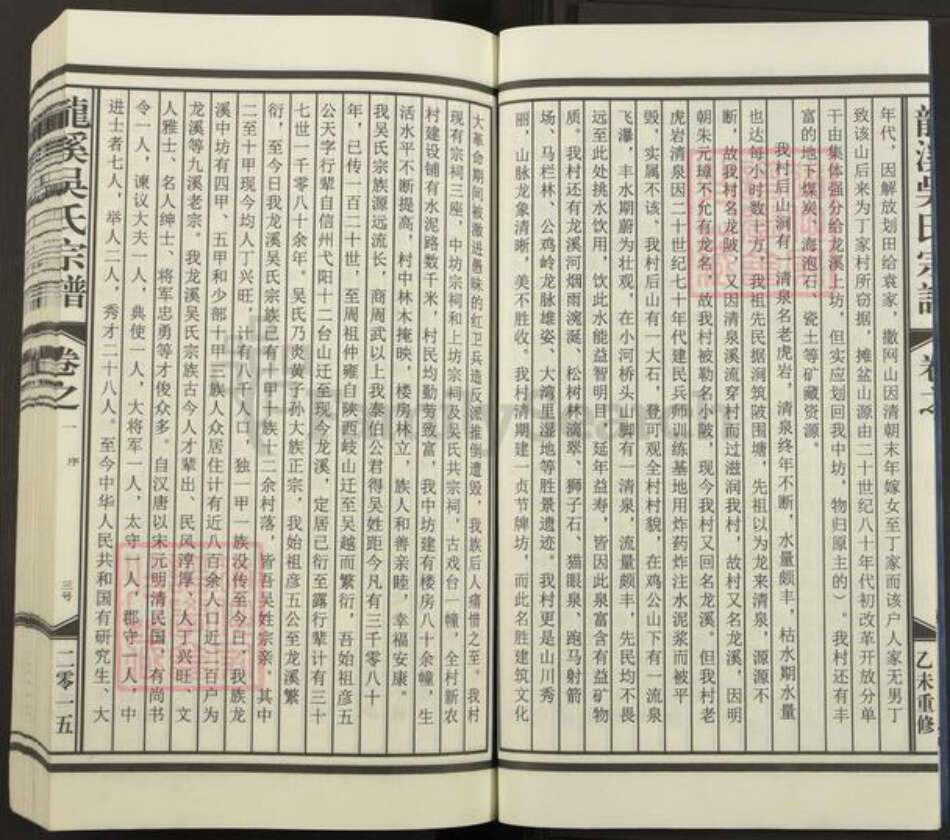 年代，因解放划田给袁家，撒网山因清朝末年嫁女至丁家而该户人家无男丁
致该山后来为丁家村所窃据，摊盆山源由二十世纪八十年代初改革开放分单
干由集体强分给龙溪上坊，但实应划回我中坊，物归原主的）。我村还有丰
富的地下煤炭、海泡石、瓷土等矿藏资源。
我村后山涧有一清泉名老虎岩，清泉终年不断，水量颇丰，枯水期水量
也达每小时数十方，我祖先民据涧筑陂围塘，先祖以为龙来清泉，源源不
断，故我村名龙陂，又因清泉溪流穿村而过滋润我村，故村又名龙溪，因明
朝朱元璋不允有龙名，故我村被勒名小陂，现今我村又回名龙溪。但我村老
虎岩清泉因二十世纪七十年代建民兵师训练基地用炸药炸注水泥浆而被平
毁，实属不该。我村后山有一大石，登可观全村村貌，在鸡公山下有一流泉
飞瀑，丰水期蔚为壮观，在小河桥头山脚有一清泉，流量颇丰，先民均不畏
远至此处挑水饮用，饮此水能益智明目，延年益寿，皆因此泉富含有益矿物
质。我村还有龙溪河烟雨滴涎、松树林滴翠、狮子石、猫眼泉、跑马射箭
场、马栏林、公鸡岭龙脉雄姿、大湾里湿地等胜景遗迹。我村更是山川秀
丽，山脉龙象清晰，美不胜收。我村清期建一贞节牌坊，而此名胜建筑文化
乙未重修
大革命期间被激进愚昧的红卫兵造反派推倒遭毁，我族后人痛惜之至，我村
现有宗祠三座，中坊宗祠和上坊宗祠及吴氏共宗祠，古戏台一幢，全村新农
村建设铺有水泥路数千米，村民均勤劳致富，我中坊建有楼房八十余幢，生
活水平不断提高，村中林木掩映，楼房林立，族人和善亲睦，幸福安康。
我吴氏宗族源远流长，商周武以上我泰伯公君得吴姓距今凡有三千零八十
年，已传一百二十世，至周祖仲雍自陕西岐山迁至吴越而繁衍，吾始祖彦五
公天字行辈自信州弋阳十二台山迁至现今龙溪，定居已衍至露行辈计有三十
七世一千零八十余年。吴氏乃炎黄子孙大族正宗，我始祖彦五公至龙溪繁
衍，至今日我龙溪吴氏宗族已有十甲十族十二余村落，皆吾吴姓宗亲。其中
二至十甲现今均人丁兴旺，计有八千人口，独一甲一族没传至今日，我族龙
溪中坊有四甲、五甲和少部十甲三族人众居住计有近八百余人口近二百户为
龙溪等九溪老宗。我龙溪吴氏宗族古今人才辈出、民风淳厚，人丁兴旺、文
人雅士、名人绅士、将军忠勇等才俊众多。自汉唐以宋元明清民国，有尚书
令一人，谏议大夫一人，典使一人，大将军一人，太守一人，郡守一人，中
进士者七人，举人二人，秀才二十八人。至今中华人民共和国有研究生、大
龍溪吳氏宗譜
卷之一
序
三号
二零一五